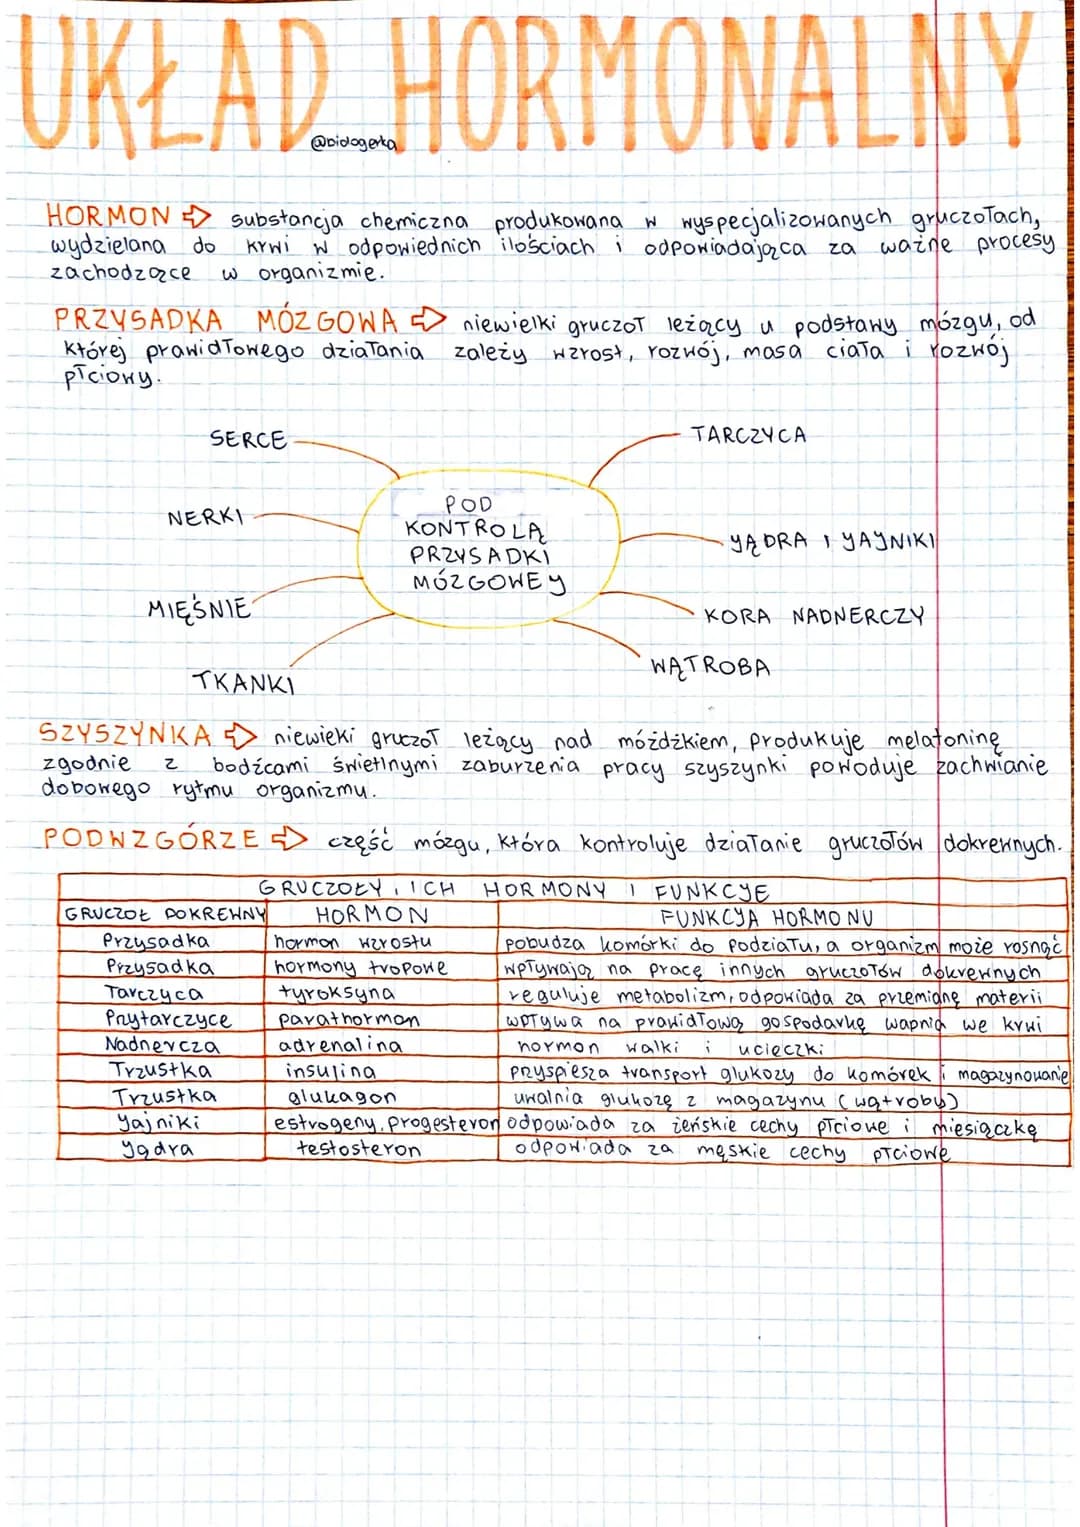 UKŁAD HORMONALNY
@biologerka
HORMON ⇨ substancja chemiczna produkowana w wyspecjalizowanych gruczołach,
wydzielana do krwi w odpowiednich ilościach i odpowiadająca za ważne procesy
zachodzące w organizmie.
PRZYSADKA MÓZGOWA ⇨ niewielki gruczoł leżący u podstawy mózgu, od
której prawidłowego działania zależy wzrost, rozwój, masa ciała i rozwój
płciowy.
SERCE
TARCZYCA
NERKI
POD
KONTROLĄ
PRZYSADKI
MÓZGOWEJ
JĄDRA I JAJNIKI
MIĘŚNIE
KORA NADNERCZY
TKANKI
WĄTROBA
SZYSZYNKA ⇨ niewieki gruczoł leżący nad móżdżkiem, produkuje melatoninę
zgodnie z bodźcami świetlnymi zaburzenia pracy szyszynki powoduje zachwianie
dobowego rytmu organizmu.
PODWZGÓRZE ⇨ część mózgu, która kontroluje działanie gruczołów dokrewnych.
GRUCZOŁY, ICH HORMONY I FUNKCJE
GRUCZOŁ DOKREWNY HORMON FUNKCJA HORMONU
Przysadka hormon wzrostu pobudza komórki do podziału, a organizm może rosnąć
Przysadka hormony tropowe wpływają na pracę innych gruczołów dokrewnych
Tarczyca tyroksyna reguluje metabolizm, odpowiada za przemianę materii
Przytarczyce parathormon wpływa na prawidłową gospodarkę wapnia we krwi
Nadnercza adrenalina hormon walki i ucieczki
Trzustka insulina pryspiesza transport glukozy do komórek i magazynowanie
Trzustka glukagon uwalnia glukozę z magazynu (wątroby)
Jajniki estrogeny, progesteron odpowiada za żeńskie cechy płciowe i miesiączkę
Jądra testosteron odpowiada za męskie cechy płciowe